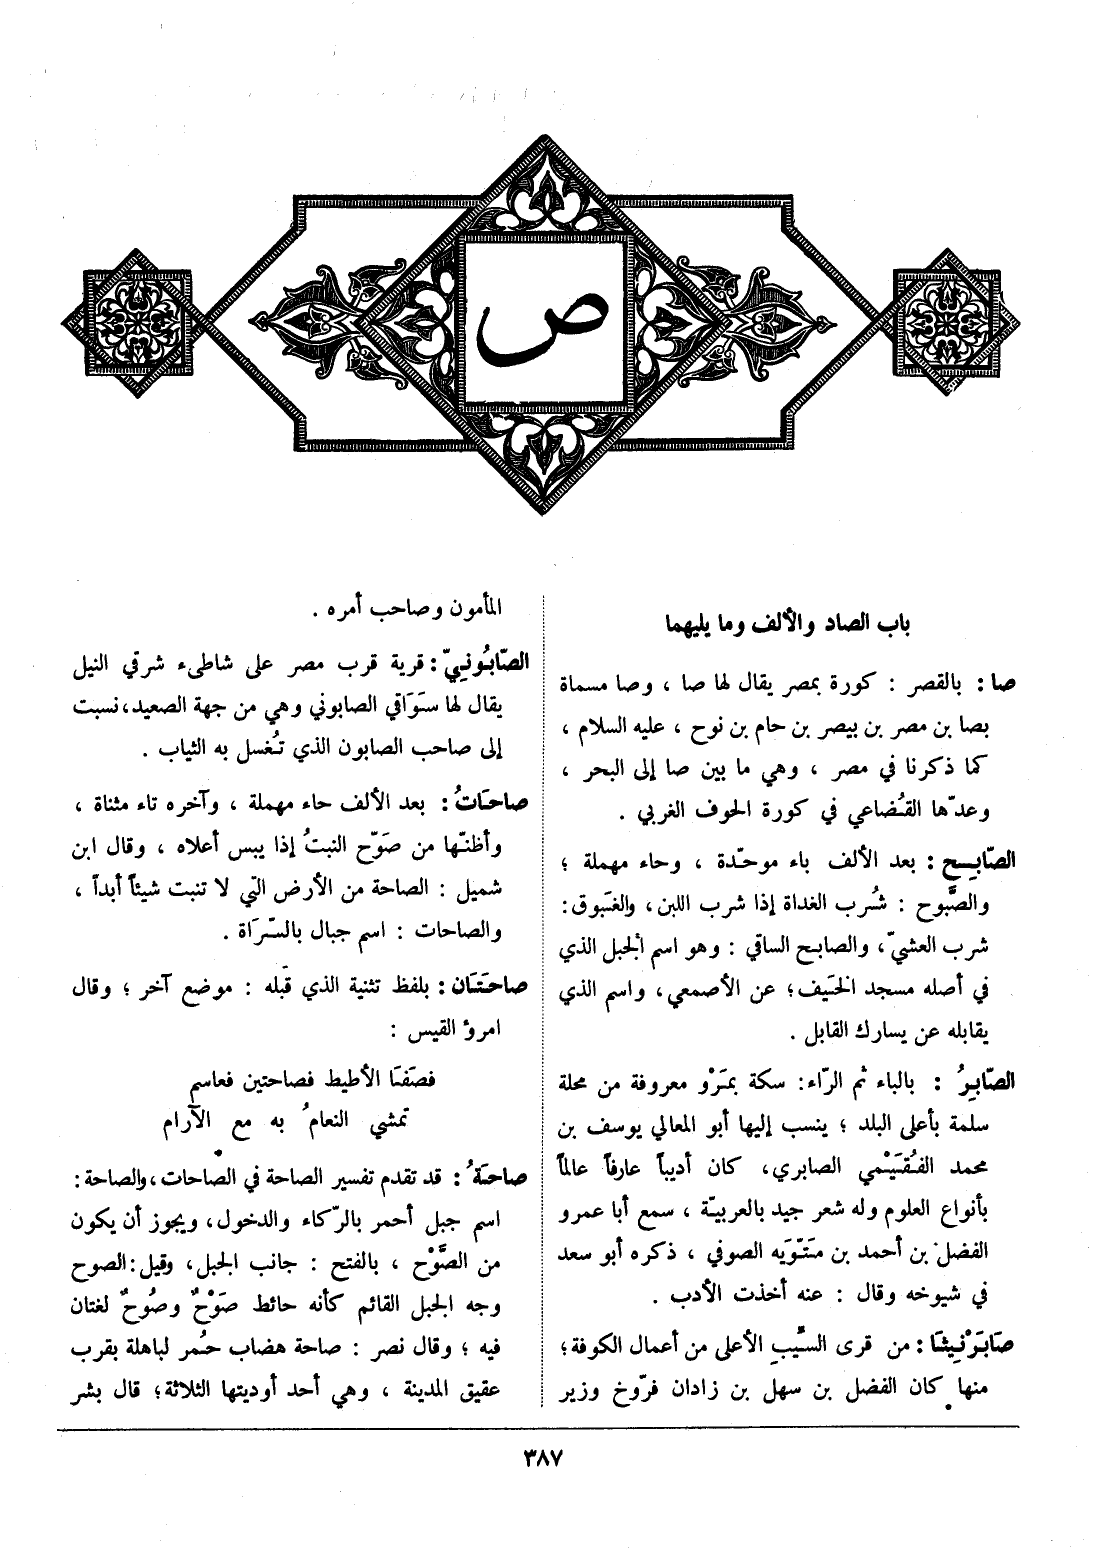 ص
باب الصاد والألف وما يليهما
صا: بالقصر : كورة بمصر يقال لها صا ، وصا مسماة
بصا بن مصر بن بيصر بن حام بن نوح ، عليه السلام ،
كما ذكرنا في مصر ، وهي ما بين صا إلى البحر ،
وعدّها القُضاعي في كورة الحوف الغربي .
الصّابح : بعد الألف باء موحّدة ، وحاء مهملة ؛
والصَّبوح : شُرب الغداة إذا شرب اللبن، والغَبوق:
شرب العشيّ، والصابح الساقي : وهو اسم الجبل الذي
في أصله مسجد الخَيف؛ عن الأصمعي، واسم الذي
يقابله عن يسارك القابل .
الصّابِرُ : بالباء ثم الرّاء: سكة بمَرْو معروفة من محلة
سلمة بأعلى البلد ؛ ينسب إليها أبو المعالي يوسف بن
محمد الفُقَيْمي الصابري، كان أديباً عارفاً عالماً
بأنواع العلوم وله شعر جيد بالعربيّة ، سمع أبا عمرو
الفضل بن أحمد بن مَتّوَيه الصوفي ، ذكره أبو سعد
في شيوخه وقال : عنه أخذت الأدب .
صابَرْنيثا: من قرى السِّيب الأعلى من أعمال الكوفة؛
منها كان الفضل بن سهل بن زادان فرّوخ وزير
المأمون وصاحب أمره .
الصّابُونيّ: قرية قرب مصر على شاطىء شرقي النيل
يقال لها سَوَاقي الصابوني وهي من جهة الصعيد، نسبت
إلى صاحب الصابون الذي تُغسل به الثياب .
صاحَاتُ: بعد الألف حاء مهملة ، وآخره تاء مثناة ،
وأظنّها من صَوّح النبتُ إذا يبس أعلاه ، وقال ابن
شميل : الصاحة من الأرض التي لا تنبت شيئاً أبداً ،
والصاحات : اسم جبال بالسّرَاة .
صاحَتَان: بلفظ تثنية الذي قبله : موضع آخر ؛ وقال
امرؤ القيس :
فصَفَا الأطيط فصاحتين فعاسم
تمشي النعامُ به مع الآرام
صاحَةُ : قد تقدم تفسير الصاحة في الصاحات، والصاحة:
اسم جبل أحمر بالرّكاء والدخول، ويجوز أن يكون
من الصَّوْح ، بالفتح : جانب الجبل، وقيل: الصوح
وجه الجبل القائم كأنه حائط صَوْحٌ وصُوحٌ لغتان
فيه ؛ وقال نصر : صاحة هضاب حُمر لباهلة بقرب
عقيق المدينة ، وهي أحد أوديتها الثلاثة؛ قال بشر
٣٨٧